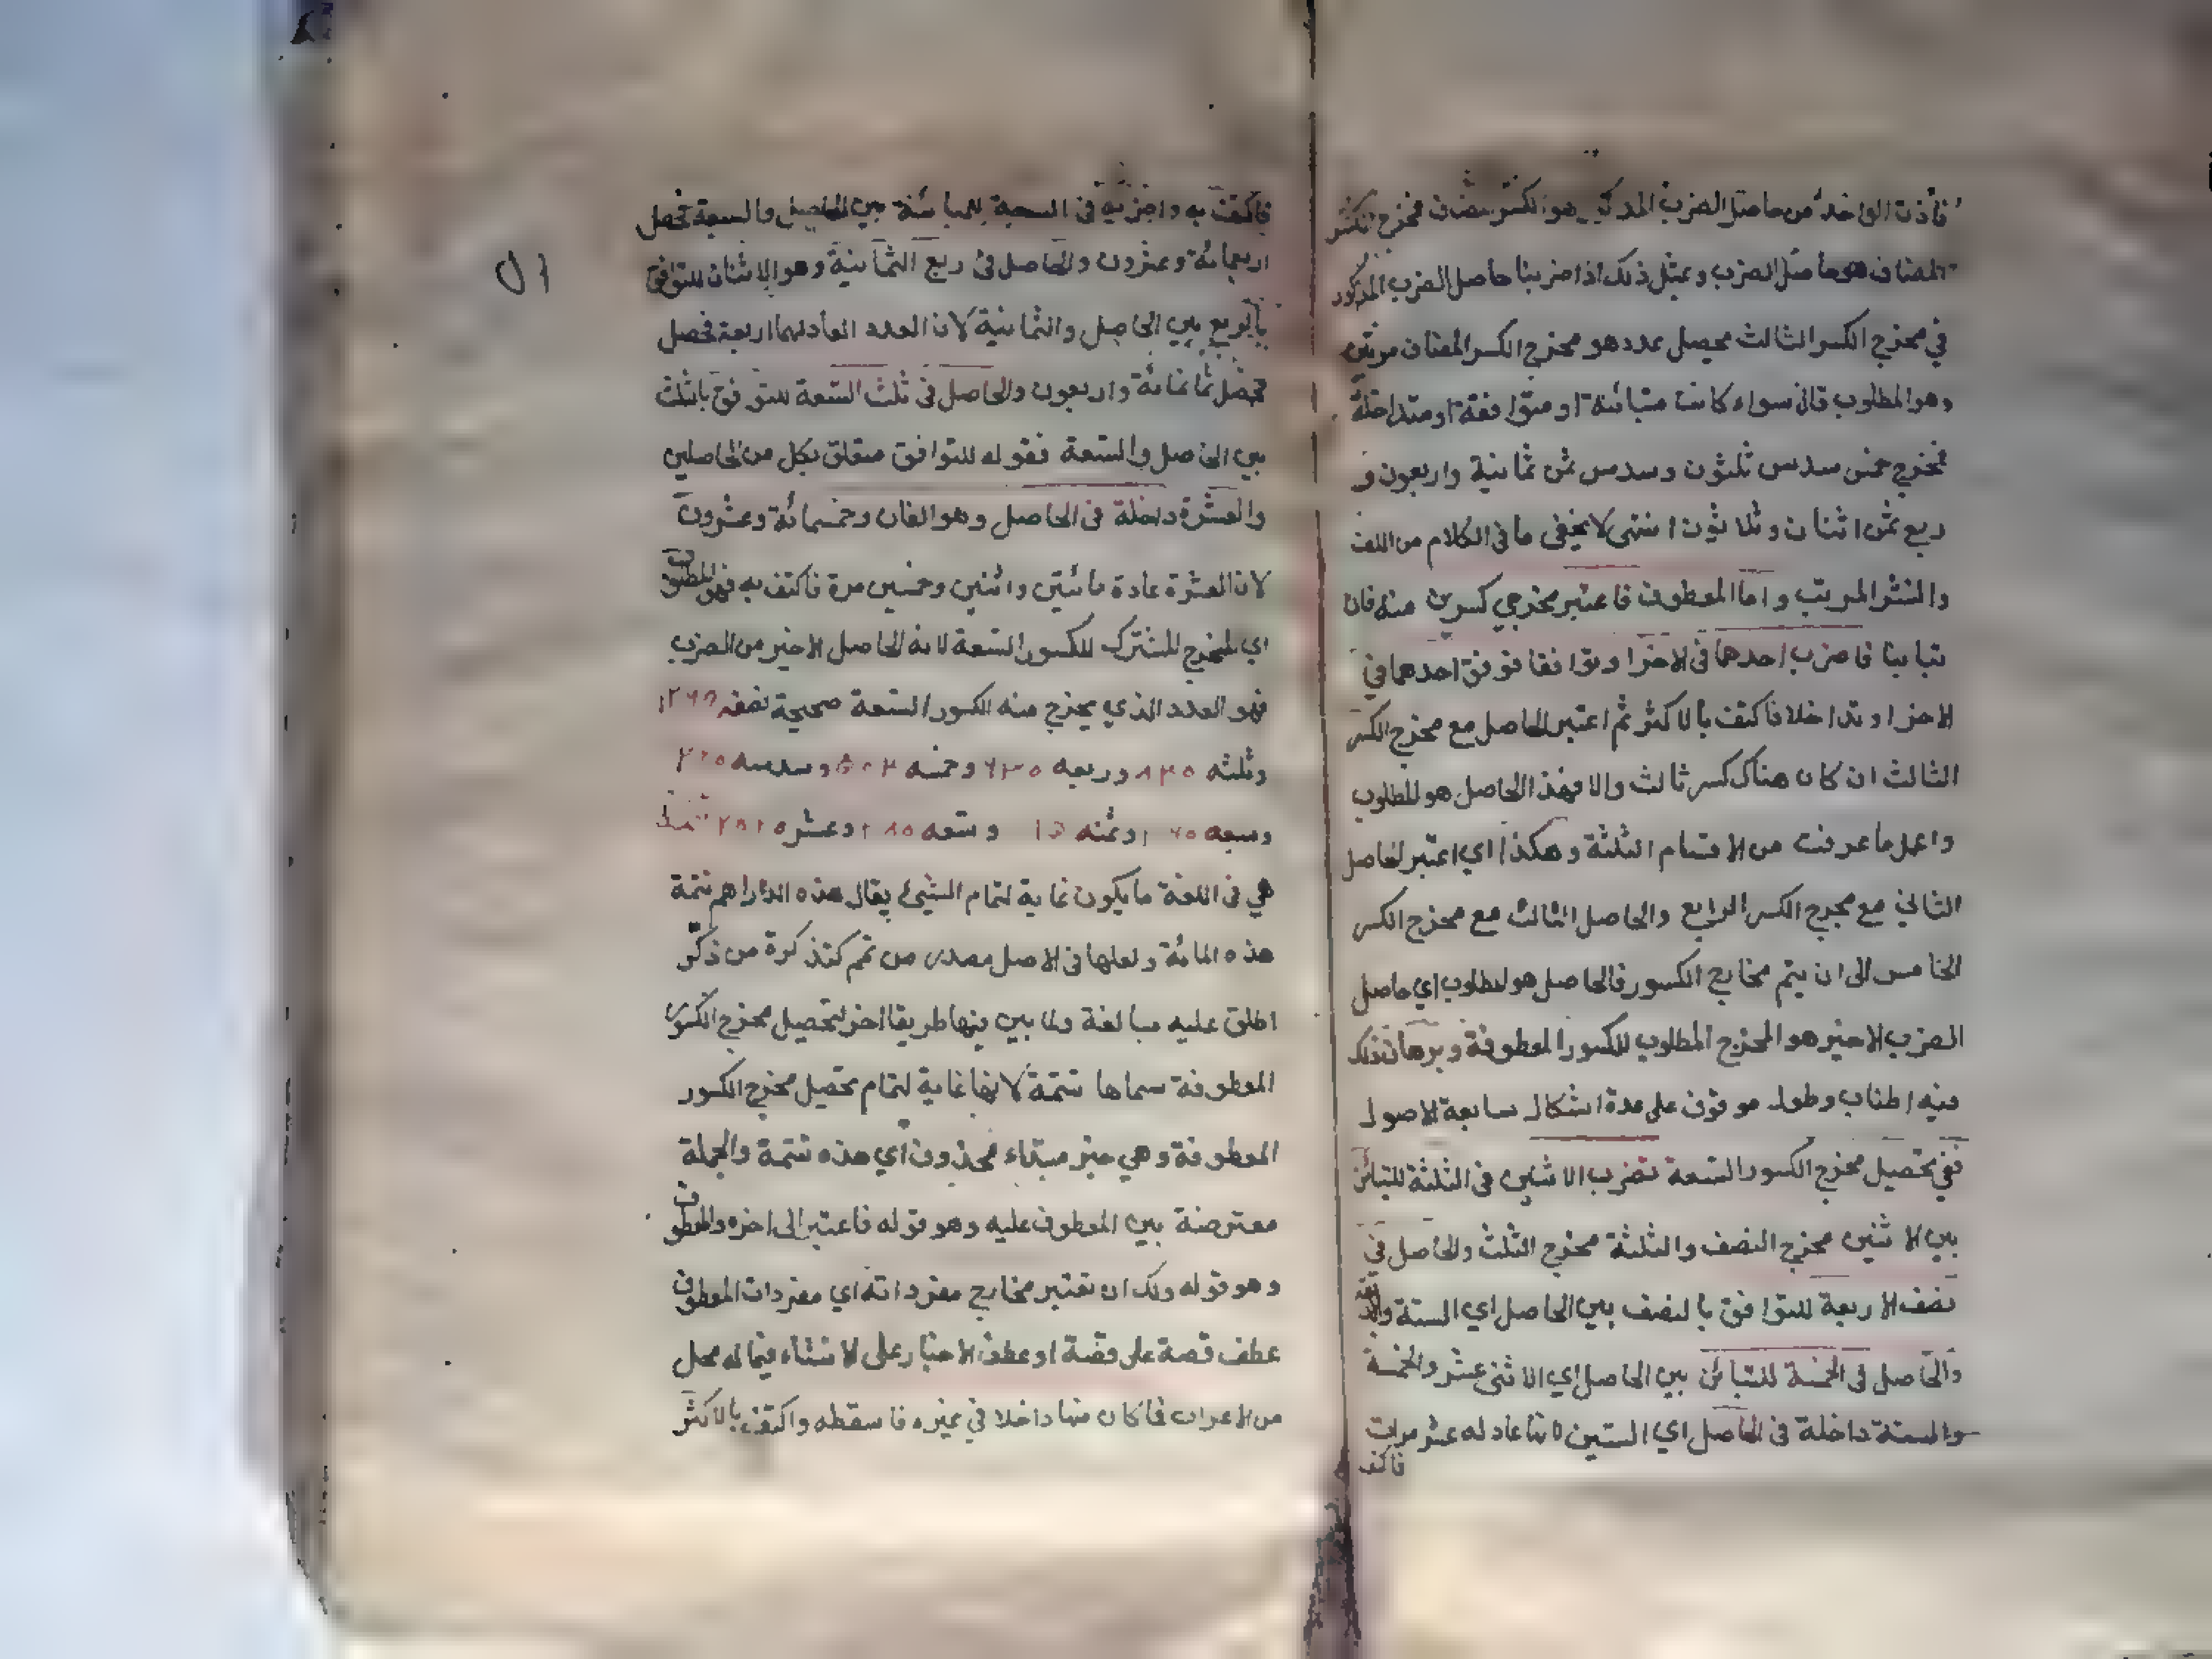 فأذن الواحد من حاصل الضرب المذكور هو الكسر مضاف مخرج الكسر
المضاف هو حاصل الضرب وبمثل ذلك اذا ضربنا حاصل الضرب المذكور
في مخرج الكسر الثالث يحصل عدد هو مخرج الكسر المضاف مرتين
وهو المطلوب قال سواء كانت متبائنة او متوافقة او متداخلة
فمخرج خمس سدس ثلثون وسدس ثمن ثمانية واربعون و
ربع ثمن اثنان وثلاثون انتهى لا يخفى ما في الكلام من اللف
والنشر المرتب واما المعطوف فاعتبر مخرجي كسرين منه فان
تباينا فاضرب احدهما في الاخر او توافقا فوفق احدهما في
الاخر او تداخلا فاكتف بالاكثر ثم اعتبر الحاصل مع مخرج الكسر
الثالث ان كان هناك كسر ثالث والا فهذا الحاصل هو المطلوب
واعمل ما عرفت من الاقسام الثلثة وهكذا اي اعتبر الحاصل
الثاني مع مخرج الكسر الرابع والحاصل الثالث مع مخرج الكسر
الخامس الى ان يتم مخارج الكسور فالحاصل هو المطلوب اي حاصل
الضرب الاخير هو المخرج المطلوب للكسور المعطوفة وبرهان ذلك
فيه اطناب وطول موقوف على عدة اشكال سابعة الاصول
ففي تحصيل مخرج الكسور التسعة تضرب الاثنين في الثلثة للتبائن
بين الاثنين مخرج النصف والثلثة مخرج الثلث والحاصل في
نصف الاربعة للتوافق بالنصف بين الحاصل اي الستة والاربعة
والحاصل في الخمسة للتبائن بين الحاصل اي الاثنى عشر والخمسة
والستة داخلة في الحاصل اي الستين لانها عادله عشر مرات
فاكتف
فاكتف به واضربه في السبعة للمبائنة بين الحاصل والسبعة تحصل
اربعمائة وعشرون والحاصل في ربع الثمانية وهو الاثنان للتوافق
بالربع بين الحاصل والثمانية لان العدد العاد لهما اربعة فحصل
فحصل ثمانمائة واربعون والحاصل في ثلث التسعة للتوافق بالثلث
بين الحاصل والتسعة فقوله للتوافق متعلق بكل من الحاصلين
والعشرة داخلة في الحاصل وهو الفان وخمسمائة وعشرون
لان العشرة عادة مائتين واثنين وخمسين مرة فاكتف به فهو المطلوب
اي المخرج المشترك للكسور التسعة لانه الحاصل الاخير من الضرب
فهو العدد الذي يخرج منه الكسور التسعة صحيحة نصفه ١٢٦٥
وثلثه ٨٣٥ وربعه ٦٣٥ وخمسه ٥٠٣ وسدسه
وسبعه وثمنه وتسعه وعشره
هي في اللغة ما يكون غاية لتمام الشيئ يقال هذه الدراهم تتمة
هذه المائة ولعلها في الاصل مصدر من تمم كتذكرة من ذكّر
اطلق عليه مبالغة ولما بين فيها طريقا اخر لتحصيل مخرج الكسور
المعطوفة سماها تتمة لانها غاية لتمام تحصيل مخرج الكسور
المعطوفة وهي خبر مبتداء محذوف اي هذه تتمة والجملة
معترضة بين المعطوف عليه وهو قوله فاعتبر الى اخره والمعطوف
وهو قوله ولك ان تعتبر مخارج مفرداته اي مفردات المعطوف
عطف قصة على قصة او عطف الاخبار على الانشاء فيما له محل
من الاعراب فما كان منها داخلا في غيره فاسقطه واكتف بالاكثر